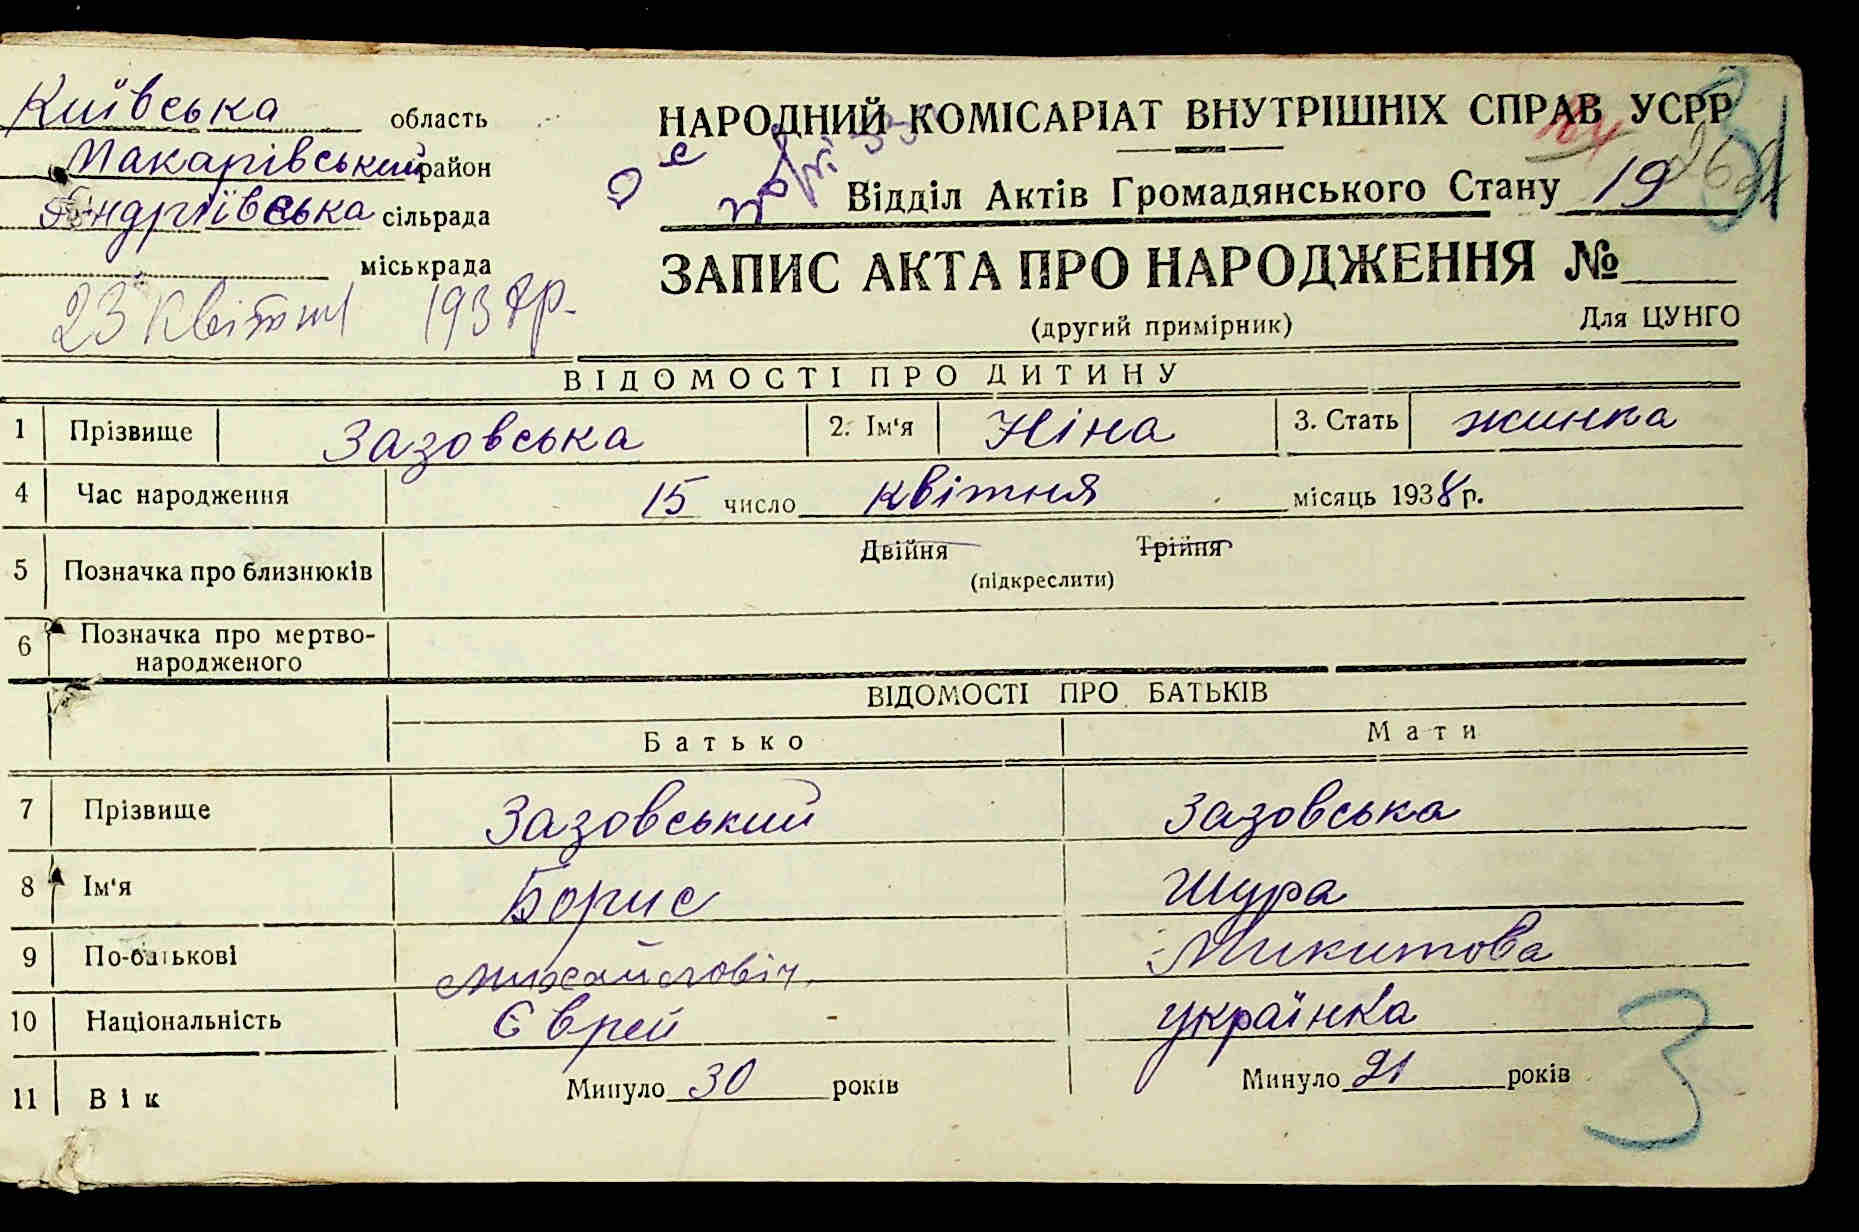 Київська область
Макарівський район
Андріївська сільрада
міськрада
23 Квітня 1938 р.
НАРОДНИЙ КОМІСАРІАТ ВНУТРІШНІХ СПРАВ УСРР
Відділ Актів Громадянського Стану 19
ЗАПИС АКТА ПРО НАРОДЖЕННЯ №
(другий примірник) Для ЦУНГО
ВІДОМОСТІ ПРО ДИТИНУ
1 Прізвище Зазовська 2. Ім'я Ніна 3. Стать жинка
4 Час народження 15 число квітня місяць 1938 р.
5 Позначка про близнюків Двійня Трійня
(підкреслити)
6 Позначка про мертво-
народженого
ВІДОМОСТІ ПРО БАТЬКІВ
Батько Мати
7 Прізвище Зазовський Зазовська
8 Ім'я Борис Шура
9 По-батькові Михайловіч Микитова
10 Національність Єврей українка
11 Вік Минуло 30 років Минуло 21 років
3